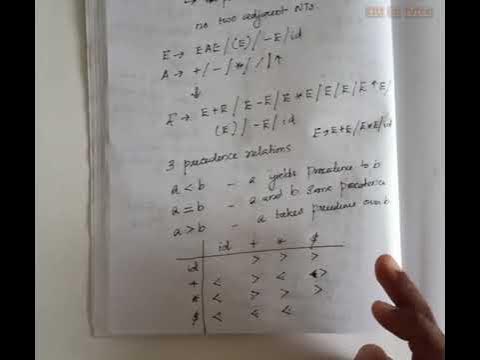 no two adjacent NTs.
E → EAE/(E)/-E/id
A → +/-/*/ / /↑
↓
E → E+E/E-E/E*E/E/E/E↑E/
(E)/-E/id
E→E+E/E*E/id
3 precedence relations
a < b - a yields precedence to b
a = b - a and b same precedence
a > b - a takes precedence over b
id + * $
id > > >
+ < > < >
* < > > >
$ < < <